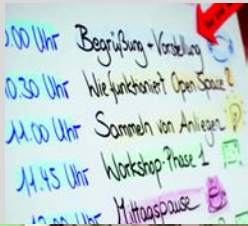 .00 Uhr Begrüßung + Vorstellung
0.30 Uhr Wie funktioniert Open Space?
11.00 Uhr Sammeln von Anliegen
11.45 Uhr Workshop-Phase 1
Uhr Mittagspause